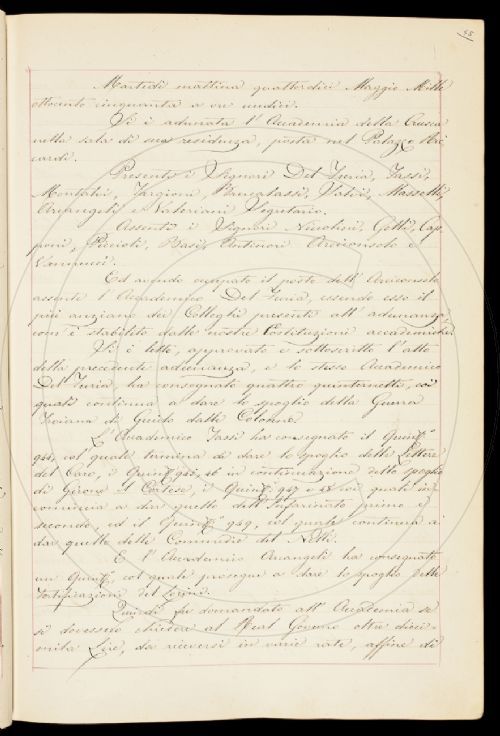 48
Martedì mattina quattordici Maggio Mille
ottocento cinquanta a ore undici.
Si è adunata l'Accademia della Crusca
nella sala di sua residenza, posta nel Palazzo Ric
cardi.
Presenti i Signori Del Furia, Tassi,
Montalvi, Targioni, Brucalassi, Valeri, Masselli,
Arcangeli e Valeriani Segretario.
Assenti i Signori Niccolini, Gotti, Cap
poni, Puccioti, Basi, Antinori Arciconsolo e
Vannucci.
Ed avendo occupato il posto dell'Arciconsolo
assente l'Accademico Del Furia, essendo esso il
più anziano dei Colleghi presenti all'adunanza,
com'è stabilito dalle nostre Costituzioni accademiche
Si è letto, approvato e sottoscritto l'atto
della precedente adunanza, e lo stesso Accademico
Del Furia, ha consegnato quattro quinternetti, coi
quali continua a dare lo spoglio della Guerra
Troiana di Guido dalle Colonne.
L'Accademico Tassi ha consegnato il Quint.º
944, col quale termina di dare lo spoglio delle Lettere
del Caro, i Quint.ⁱ 945, 46 in continuazione dello spoglio
di Girone il Cortese, i Quint.ⁱ 947 e 48 coi quali in
comincia a dar quello dell'Infarinato primo e
secondo, ed il Quint.º 949, col quale continua a
dar quello delle Commedie del Nelli.
E l'Accademico Arcangeli ha consegnato
un Quint.º, col quale prosegue a dare lo spoglio delle
Fortificazioni del Lorini.
Quindi fu domandato all'Accademia se
si dovessero chiedere al Real Governo oltre dieci-
mila Lire, da riceversi in varie rate, affine di